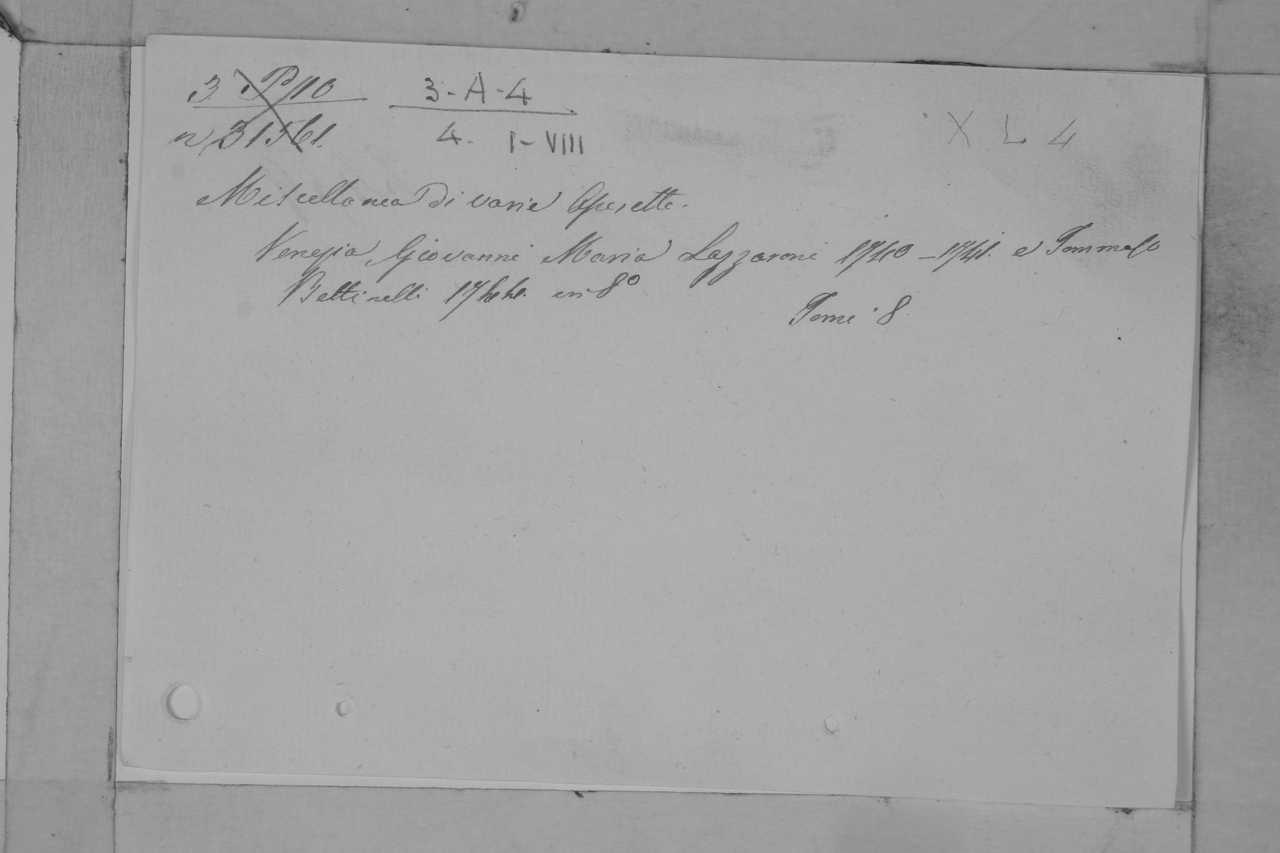 3 P 10 3-A-4
n, 31561. 4. I-VIII
X L 4
Miscellanea di varie Operette.
Venezia, Giovanni Maria Lazzaroni 1740-1741. e Tommaso
Bettinelli 1744. in 8º
Tomi 8